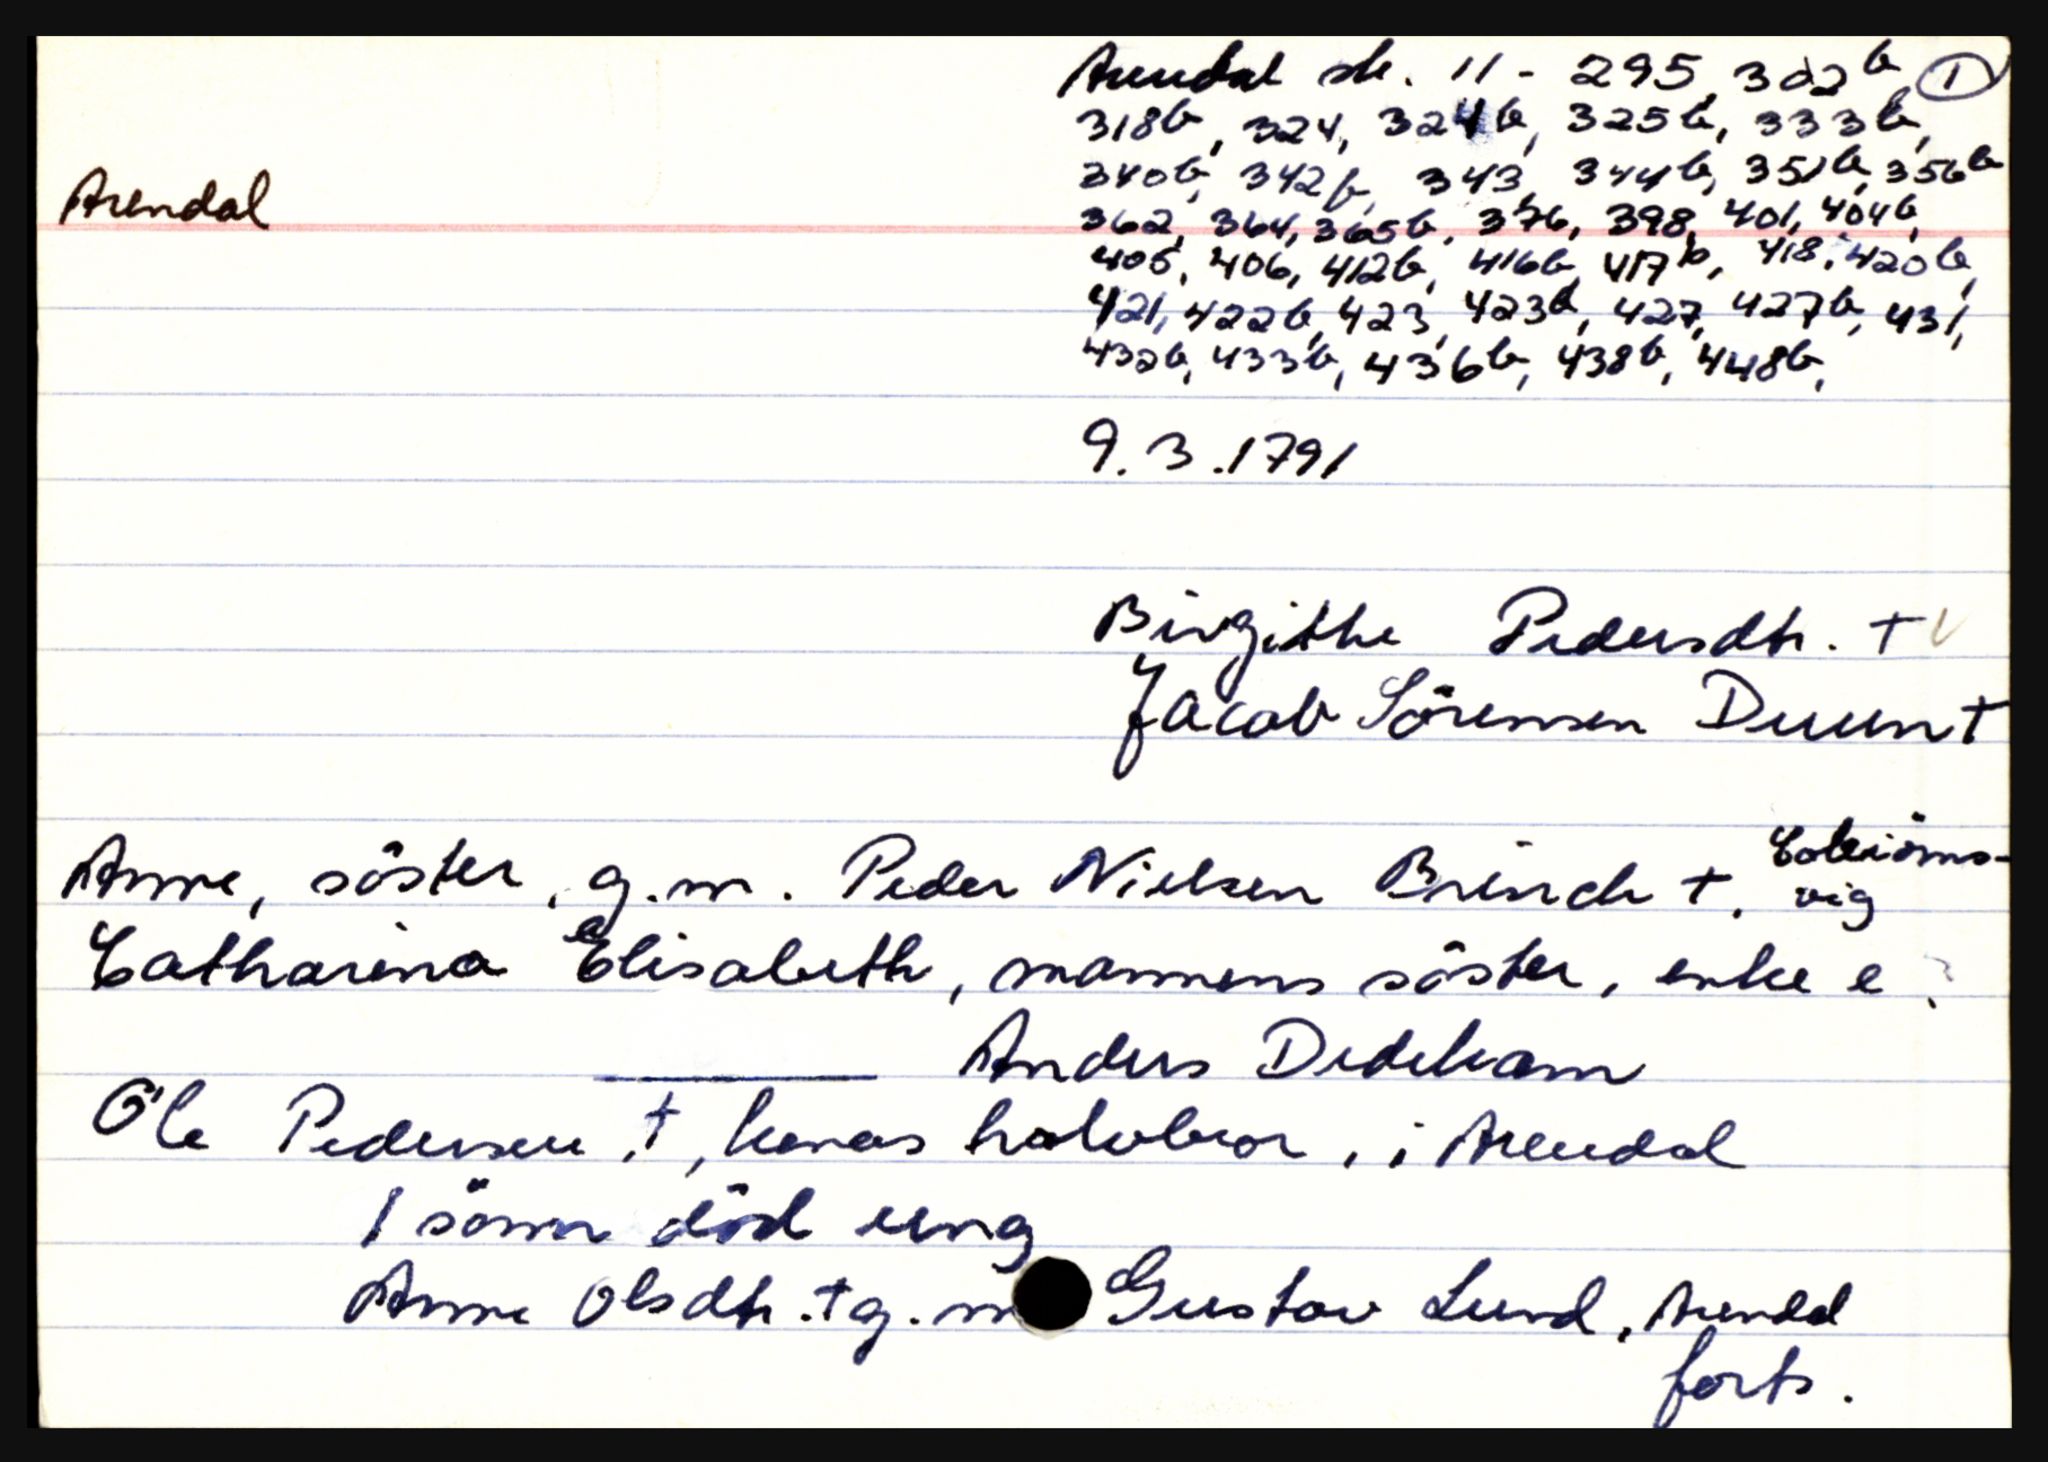 Arendal sk. 11 - 295, 302b, 1
318b, 324, 324b, 325b, 333b,
340b, 342b, 343, 344b, 351b, 356b
Arendal
362, 364, 365b, 376, 398, 401, 404b,
405, 406, 412b, 416b, 417b, 418, 420b,
421, 422b, 423, 423b, 427, 427b, 431,
432b, 433b, 436b, 438b, 448b,
9.3.1791
Birgithe Pedersdtr. +
Jacob Sörensen Duun +
Anne, söster, g.m. Peder Nielsen Brinch +, Colbiörns-
vig
Catharina Elisabeth, mannens söster, enke e
Anders Dedekam
Ole Pedersen, +, konas halvbror, i Arendal
1 sönn död ung
Anne Olsdtr. + g.m Gustav Lund, Arendal
forts.